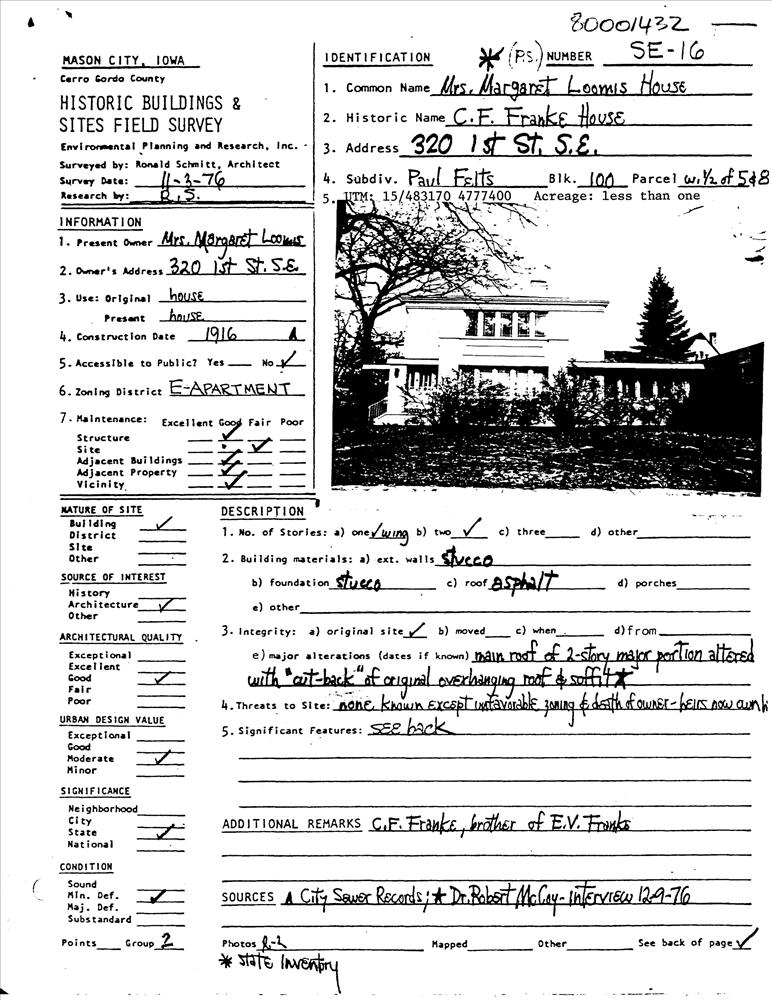 80001432
MASON CITY, IOWA
Cerro Gordo County
HISTORIC BUILDINGS &
SITES FIELD SURVEY
Environmental Planning and Research, Inc.
Surveyed by: Ronald Schmitt, Architect
Survey Date: 11-3-76
Research by: R.S.
IDENTIFICATION * (P.S.) NUMBER SE-16
1. Common Name Mrs. Margaret Loomis House
2. Historic Name C.F. Franke House
3. Address 320 1st St. S.E.
4. Subdiv. Paul Felts Blk. 100 Parcel w. 1/2 of 5&8
5. UTM: 15/483170 4777400 Acreage: less than one
INFORMATION
1. Present Owner Mrs. Margaret Loomis
2. Owner's Address 320 1st St. S.E.
3. Use: Original house
Present house
4. Construction Date 1916 A
5. Accessible to Public? Yes No ✓
6. Zoning District E-APARTMENT
7. Maintenance: Excellent Good Fair Poor
Structure ✓
Site ✓
Adjacent Buildings ✓
Adjacent Property ✓
Vicinity ✓
NATURE OF SITE
Building ✓
District
Site
Other
SOURCE OF INTEREST
History
Architecture ✓
Other
ARCHITECTURAL QUALITY
Exceptional
Excellent
Good ✓
Fair
Poor
URBAN DESIGN VALUE
Exceptional
Good
Moderate ✓
Minor
SIGNIFICANCE
Neighborhood
City
State ✓
National
CONDITION
Sound
Min. Def. ✓
Maj. Def.
Substandard
Points Group 2
DESCRIPTION
1. No. of Stories: a) one ✓ wing b) two ✓ c) three d) other
2. Building materials: a) ext. walls stucco
b) foundation stucco c) roof asphalt d) porches
e) other
3. Integrity: a) original site ✓ b) moved c) when d) from
e) major alterations (dates if known) main roof of 2-story major portion altered
with "cut-back" of original overhanging roof & soffit *
4. Threats to Site: none known except unfavorable zoning & death of owner - heirs now own
5. Significant Features: see back
ADDITIONAL REMARKS C.F. Franke, brother of E.V. Franke
SOURCES A City Sewer Records; * Dr. Robert McCoy - Interview 12-9-76
Photos R-2 Mapped Other See back of page ✓
* State Inventory